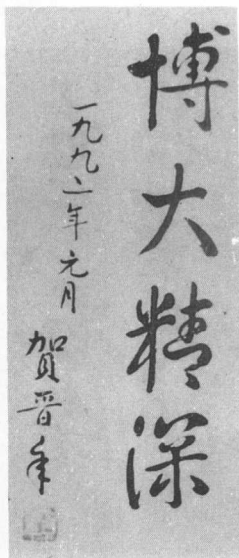 博大精深
一九九二年元月
賀晋年